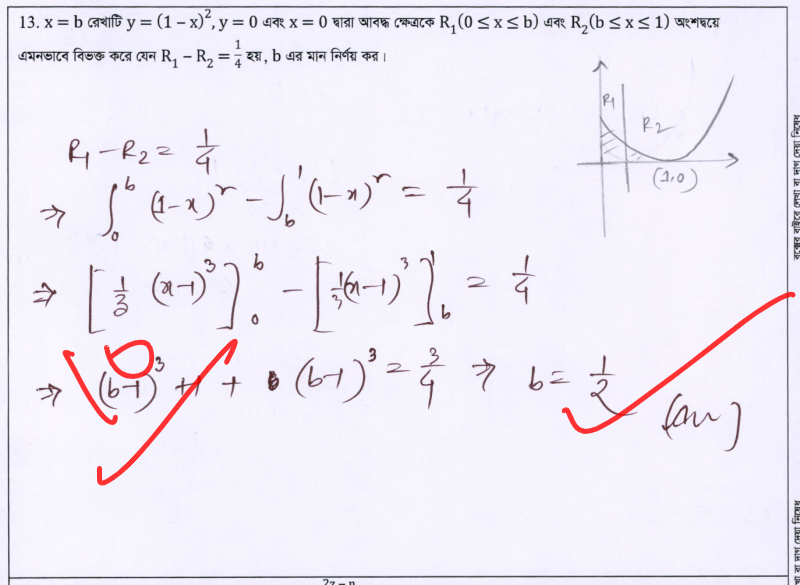 13. x = b রেখাটি y = (1 − x)², y = 0 এবং x = 0 দ্বারা আবদ্ধ ক্ষেত্রকে R₁(0 ≤ x ≤ b) এবং R₂(b ≤ x ≤ 1) অংশদ্বয়ে
এমনভাবে বিভক্ত করে যেন R₁ − R₂ = 1/4 হয়, b এর মান নির্ণয় কর।
R₁
R₂
(1,0)
R₁ − R₂ = 1/4
⇒ ∫₀ᵇ (1−x)² − ∫ᵇ¹ (1−x)² = 1/4
⇒ [1/3 (x−1)³]₀ᵇ − [1/3 (x−1)³]ᵇ¹ = 1/4
⇒ (b−1)³ + 1 + (b−1)³ = 3/4 ⇒ b = 1/2 (Ans)
বক্সের বাইরে লেখা বা দাগ দেয়া নিষেধ
বা দাগ দেয়া নিষেধ